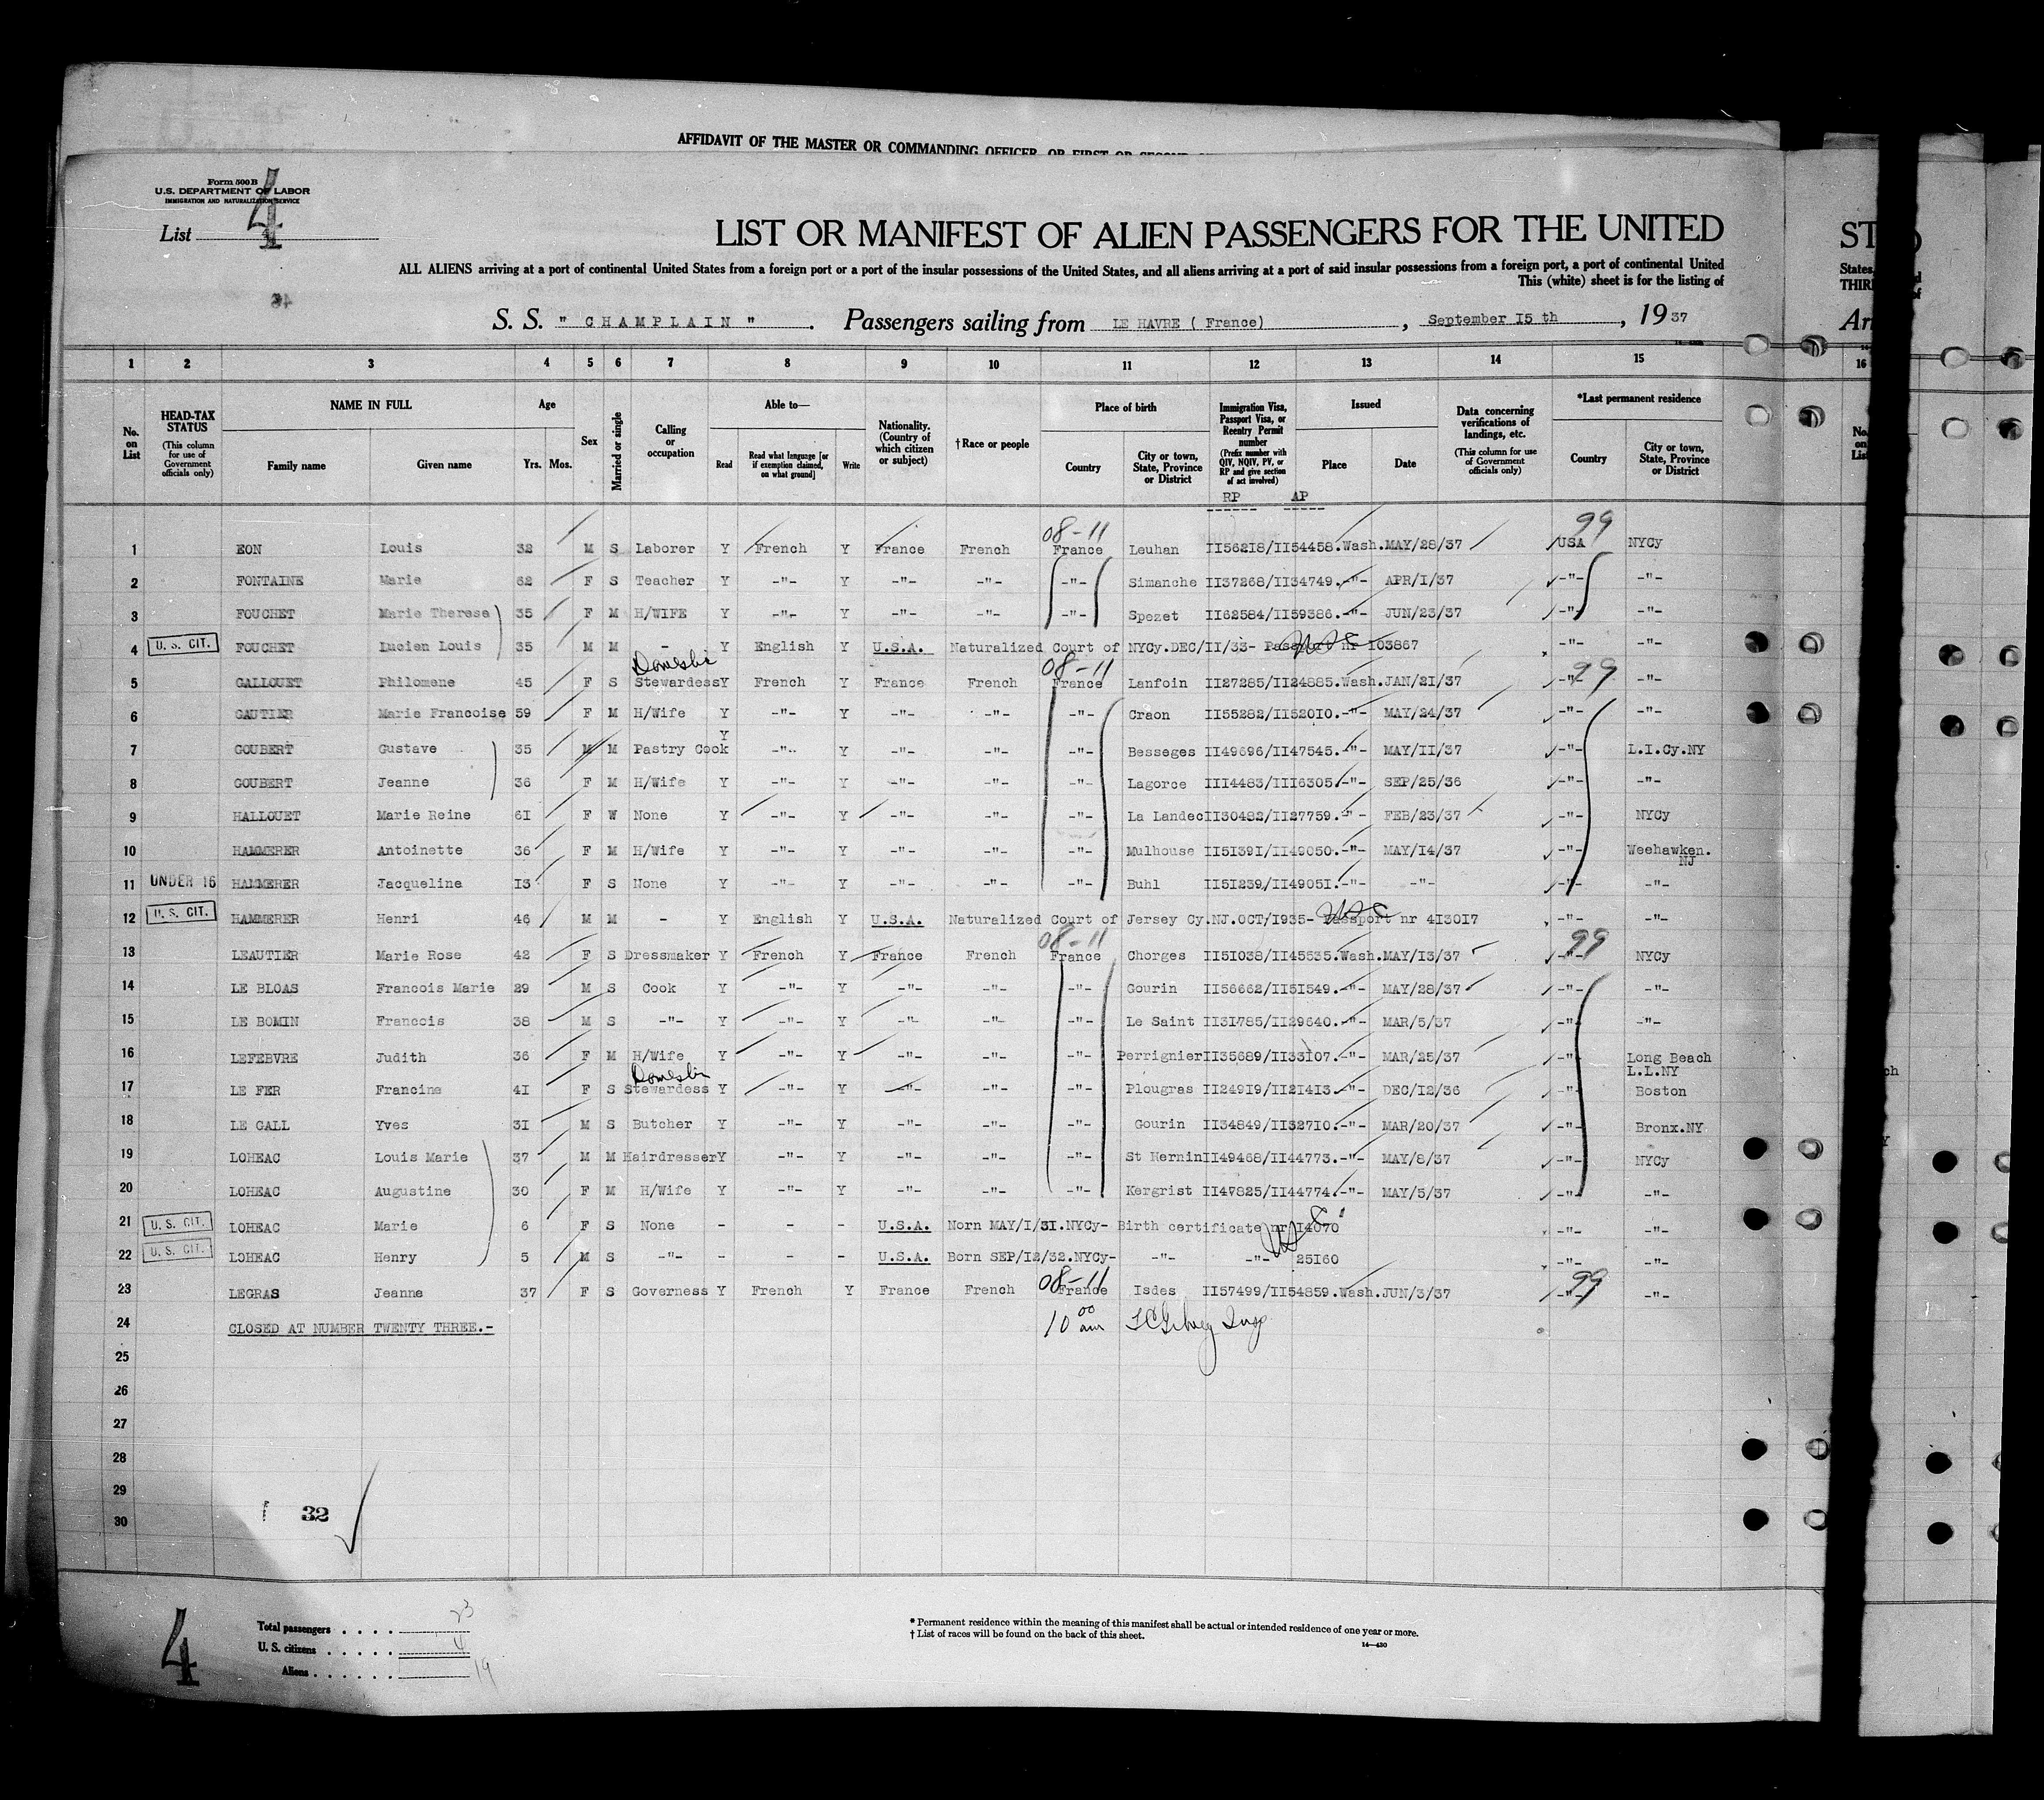 AFFIDAVIT OF THE MASTER OR COMMANDING OFFICER, OR FIRST OR SECOND
Form 500 B
U.S. DEPARTMENT OF LABOR
IMMIGRATION AND NATURALIZATION SERVICE
List 4
4
LIST OR MANIFEST OF ALIEN PASSENGERS FOR THE UNITED
ST
ALL ALIENS arriving at a port of continental United States from a foreign port or a port of the insular possessions of the United States, and all aliens arriving at a port of said insular possessions from a foreign port, a port of continental United
States,
This (white) sheet is for the listing of
THIR
S. S. " CHAMPLAIN ". Passengers sailing from LE HAVRE ( France), September I5 th, 1937
Arr
1 2 3 4 5 6 7 8 9 10 11 12 13 14 15 16
No. on List
HEAD-TAX STATUS (This column for use of Government officials only)
NAME IN FULL
Family name Given name
Age
Yrs. Mos.
Sex
Married or single
Calling or occupation
Able to—
Read Read what language [or if exemption claimed, on what ground] Write
Nationality. (Country of which citizen or subject)
† Race or people
Place of birth
Country City or town, State, Province or District
Immigration Visa, Passport Visa, or Reentry Permit number (Prefix number with QIV, NQIV, PV, or RP and give section of act involved)
RP AP
Issued
Place Date
Data concerning verifications of landings, etc. (This column for use of Government officials only)
*Last permanent residence
Country City or town, State, Province or District
08-11 99
1 EON Louis 32 M S Laborer Y French Y France French France Leuhan II56218/II54458.Wash.MAY/28/37 USA NYCy
2 FONTAINE Marie 62 F S Teacher Y -"- Y -"- -"- -"- Simanche II37268/II34749.-"- APR/I/37 -"- -"-
3 FOUCHET Marie Therese 35 F M H/WIFE Y -"- Y -"- -"- -"- Spezet II62584/II59386.-"- JUN/23/37 -"- -"-
4 U. S. CIT. FOUCHET Lucien Louis 35 M M - Y English Y U.S.A. Naturalized Court of NYCy.DEC/II/33- Passport nr I03867 -"- -"-
Domestic 08-11 99
5 GALLOUET Philomene 45 F S Stewardess Y French Y France French France Lanfoin II27285/II24885.Wash.JAN/21/37 -"- -"-
6 GAUTIER Marie Francoise 59 F M H/Wife Y -"- Y -"- -"- -"- Craon II55282/II52010.-"- MAY/24/37 -"- -"-
7 GOUBERT Gustave 35 M M Pastry Cook Y -"- Y -"- -"- -"- Besseges II49696/II47545.-"- MAY/II/37 -"- L.I.Cy.NY
8 GOUBERT Jeanne 36 F M H/Wife Y -"- Y -"- -"- -"- Lagorce III4483/III6305.-"- SEP/25/36 -"- -"-
9 HALLOUET Marie Reine 6I F W None Y -"- Y -"- -"- -"- La Landec II30482/II27759.-"- FEB/23/37 -"- NYCy
10 HAMMERER Antoinette 36 F M H/Wife Y -"- Y -"- -"- -"- Mulhouse II5I39I/II49050.-"- MAY/I4/37 -"- Weehawken. NJ
11 UNDER 16 HAMMERER Jacqueline I3 F S None Y -"- Y -"- -"- -"- Buhl II5I239/II4905I.-"- -"- -"- -"-
12 U. S. CIT. HAMMERER Henri 46 M M - Y English Y U.S.A. Naturalized Court of Jersey Cy.NJ.OCT/I935- Passport nr 4I30I7 -"- -"-
08-11 99
13 LEAUTIER Marie Rose 42 F S Dressmaker Y French Y France French France Chorges II5I038/II45535.Wash.MAY/I3/37 -"- NYCy
14 LE BLOAS Francois Marie 29 M S Cook Y -"- Y -"- -"- -"- Gourin II56662/II5I549.-"- MAY/28/37 -"- -"-
15 LE BOMIN Francois 38 M S -"- Y -"- Y -"- -"- -"- Le Saint II3I785/II29640.-"- MAR/5/37 -"- -"-
16 LEFEBVRE Judith 36 F M H/Wife Y -"- Y -"- -"- -"- Perrignier II35689/II33I07.-"- MAR/25/37 -"- Long Beach L.I.NY
Domestic
17 LE FER Francine 4I F S Stewardess Y -"- Y -"- -"- -"- Plougras II249I9/II2I4I3.-"- DEC/I2/36 -"- Boston
18 LE GALL Yves 3I M S Butcher Y -"- Y -"- -"- -"- Gourin II34849/II327I0.-"- MAR/20/37 -"- Bronx.NY
19 LOHEAC Louis Marie 37 M M Hairdresser Y -"- Y -"- -"- -"- St Hernin II49468/II44773.-"- MAY/8/37 -"- NYCy
20 LOHEAC Augustine 30 F M H/Wife Y -"- Y -"- -"- -"- Kergrist II47825/II44774.-"- MAY/5/37 -"- -"-
21 U. S. CIT. LOHEAC Marie 6 F S None - - - U.S.A. Norn MAY/I/3I.NYCy- Birth certificate nr I4070 -"- -"-
22 U. S. CIT. LOHEAC Henry 5 M S -"- - - - U.S.A. Born SEP/I2/32.NYCy- -"- -"- 25I60 -"- -"-
08-11 99
23 LEGRAS Jeanne 37 F S Governess Y French Y France French France Isdes II57499/II54859.Wash.JUN/3/37 -"- -"-
24 CLOSED AT NUMBER TWENTY THREE.- 10 00 am
25
26
27
28
29
30
32
4
Total passengers . . . . 23
U. S. citizens . . . . . 4
Aliens . . . . . . 19
* Permanent residence within the meaning of this manifest shall be actual or intended residence of one year or more.
† List of races will be found on the back of this sheet.
14—430